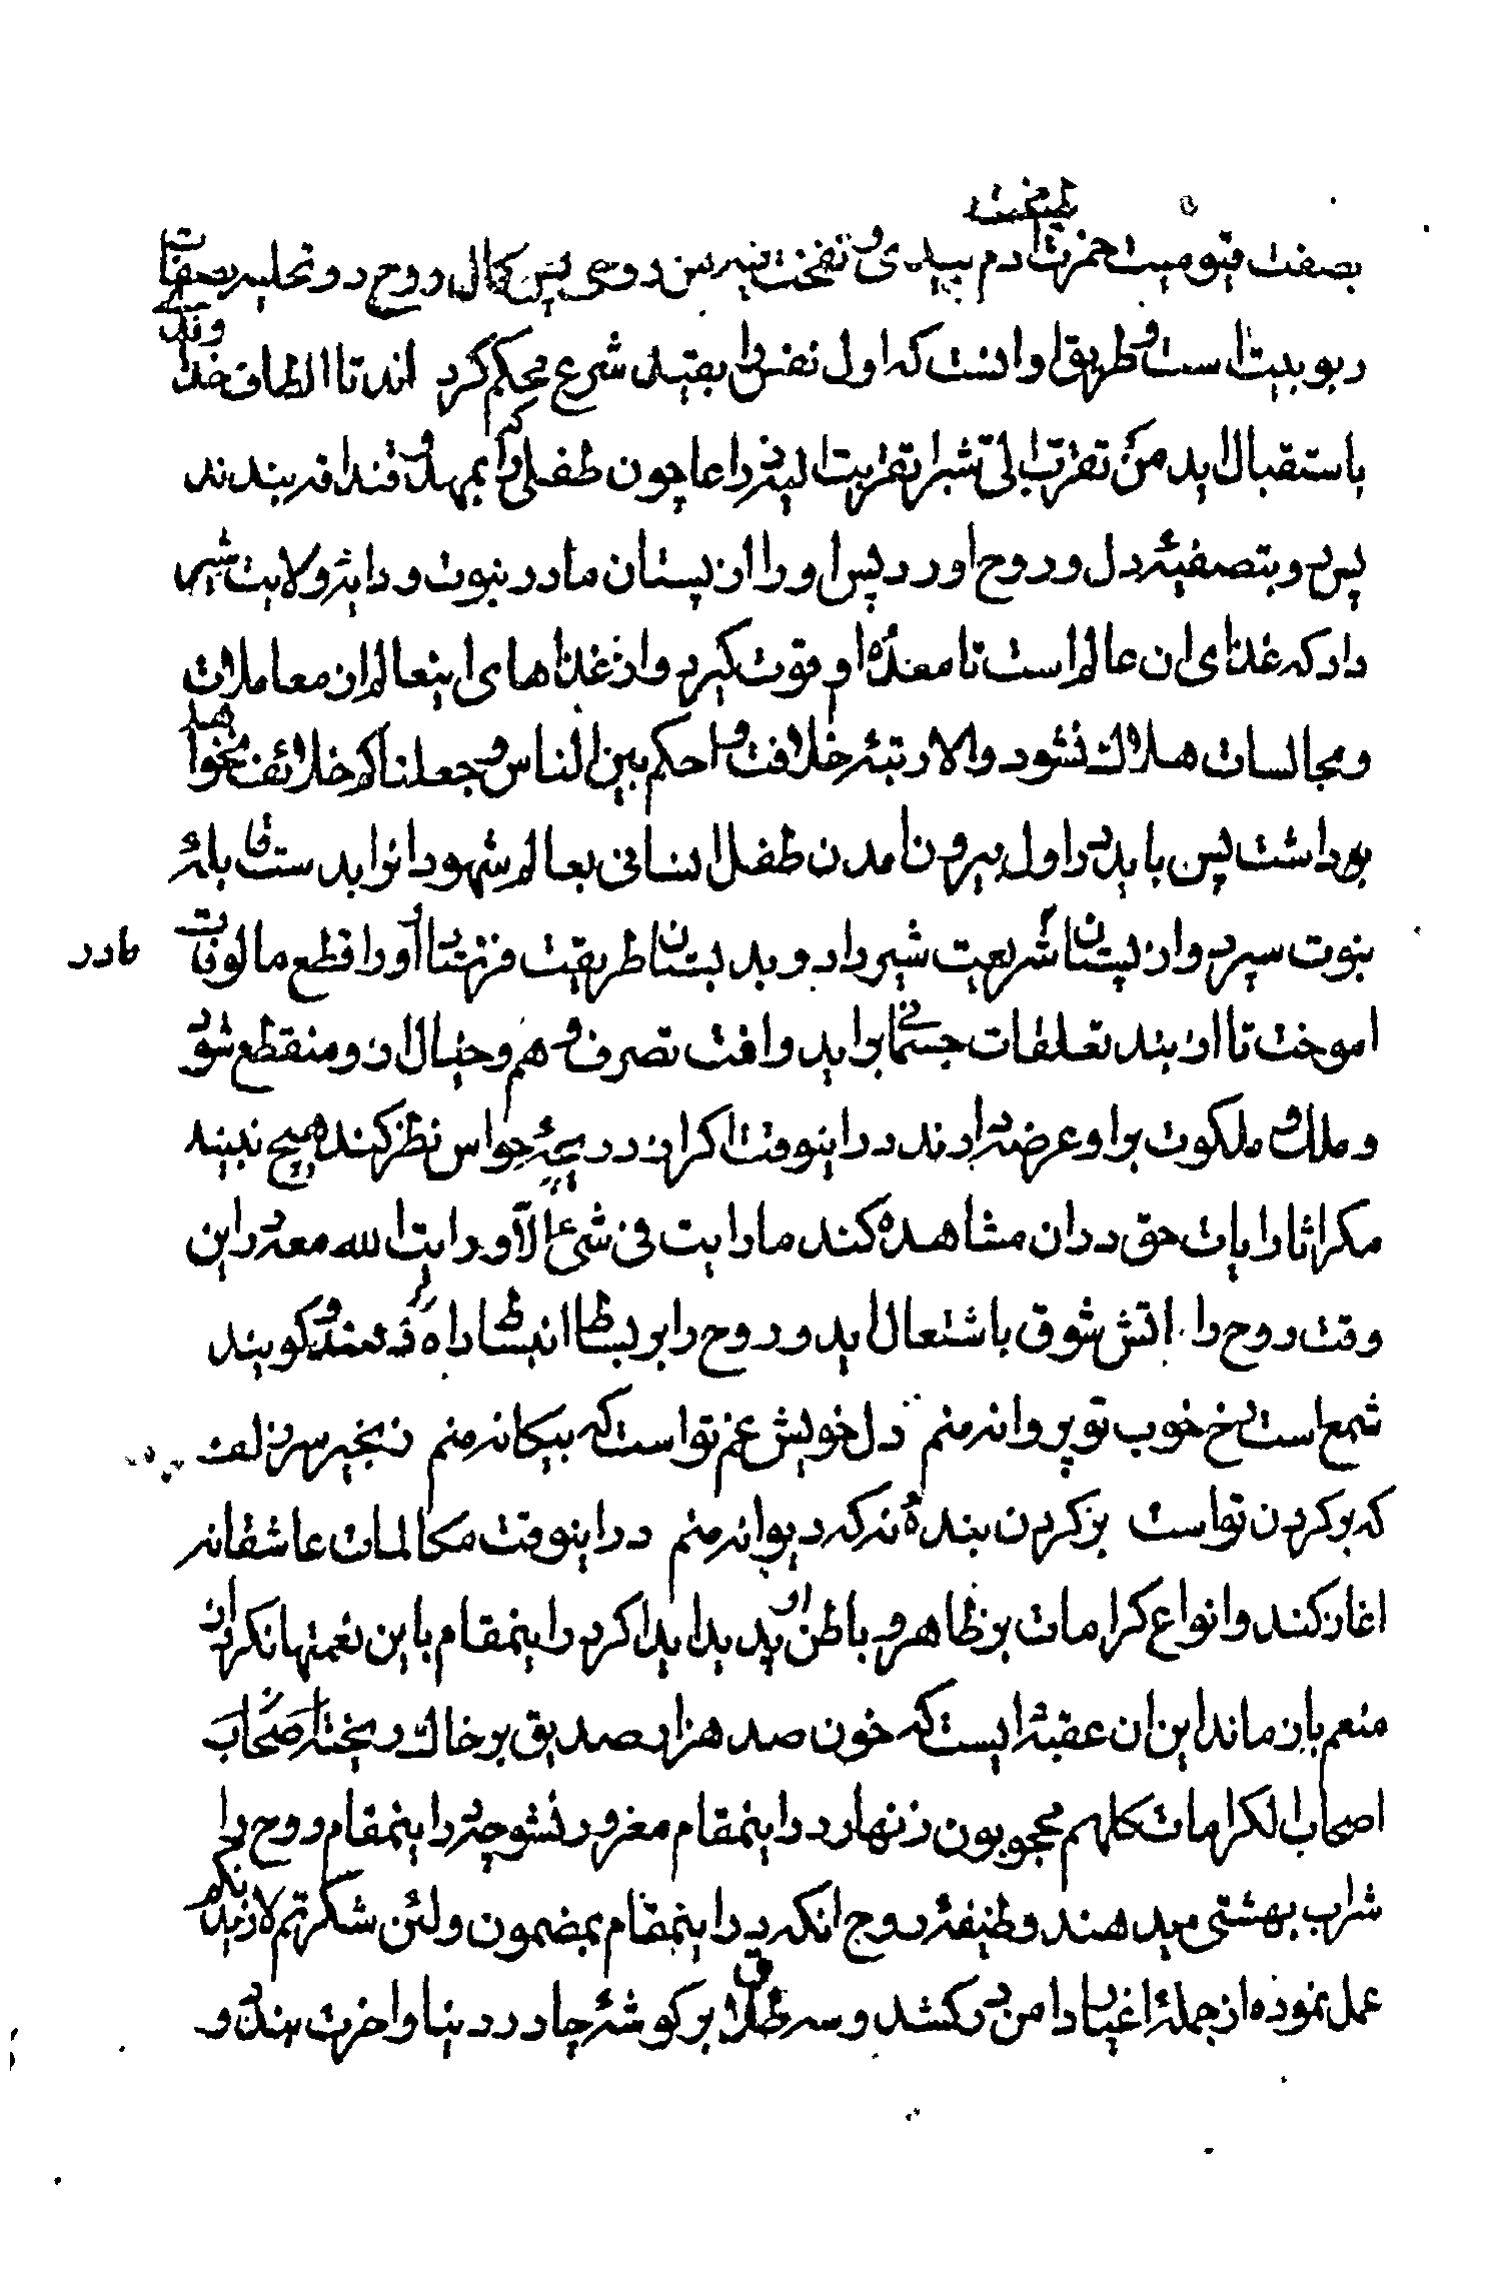 بصفت قیومیت خمرت طینت ادم بیدی و نفخت فیه من روحی پس کمال روح در و تحلیه بصفات
ربوبیت است و طریق او انست که اول نفس را بقید شرع محکم کرد اند تا الطاف خداوندی
باستقبال اید من تقرب الی شبرا تقربت الیه ذراعا چون طفلی که را بمهد و قنداقه بندند
پرد و بتصفیهٔ دل و روح اورد پس او را از پستان مادر نبوت و دایهٔ ولایت شیر
داد که غذای ان عالم است تا معدهٔ او قوت کیرد و از غذاهای اینعالم از معاملات
و مجالسات هلاک نشود والا رتبهٔ خلافت و احکم بین الناس و جعلناکم خلائف نخواهد
برداشت پس باید در اول بیرون امدن طفل انسانی بعالم شهود انرا بدست قابلهٔ
نبوت سپرد و از پستان شریعت شیر داد و بدبستان طریقت فرستاد او را قطع مالوفات
مادر
اموخت تا از بند تعلقات جسمانی براید وافت تصرف وهم و خیال از و منقطع شود
و ملک و ملکوت بر او عرضه دارند در اینوقت اکر از دریچهٔ حواس نظر کند هیچ نبیند
مکر اثار ایات حق در ان مشاهده کند ما رایت فی شئ الا و رایت الله معه در این
وقت روح را اتش شوق باشتعال اید و روح را بر بساط انبساط راه دهند و کویند
شمع است رخ خوب تو پروانه منم دل خویش غم تو است که بیکانه منم زنجیر سر زلف
که بر کردن تو است بر کردن بنده نه که دیوانه منم در اینوقت مکالمات عاشقانه
اغاز کند و انواع کرامات بر ظاهر و باطن او پدید اید اکر در اینمقام باین نعمتها نکرد از
منعم باز ماند این ان عقبهٔ ایست که خون صد هزار صدیق بر خاک ریخته اصحاب
اصحاب الکرامات کلهم محجوبون زنهار در اینمقام مغرور نشو چه در اینمقام روح را
شراب بهشتی میدهند وظیفهٔ روح انکه در اینمقام بمضمون ولئن شکرتم لازیدنکم
عمل نموده از جملهٔ اغیار دامن در کشد و سه طلاق بر کوشهٔ چادر دنیا و اخرت بندد و